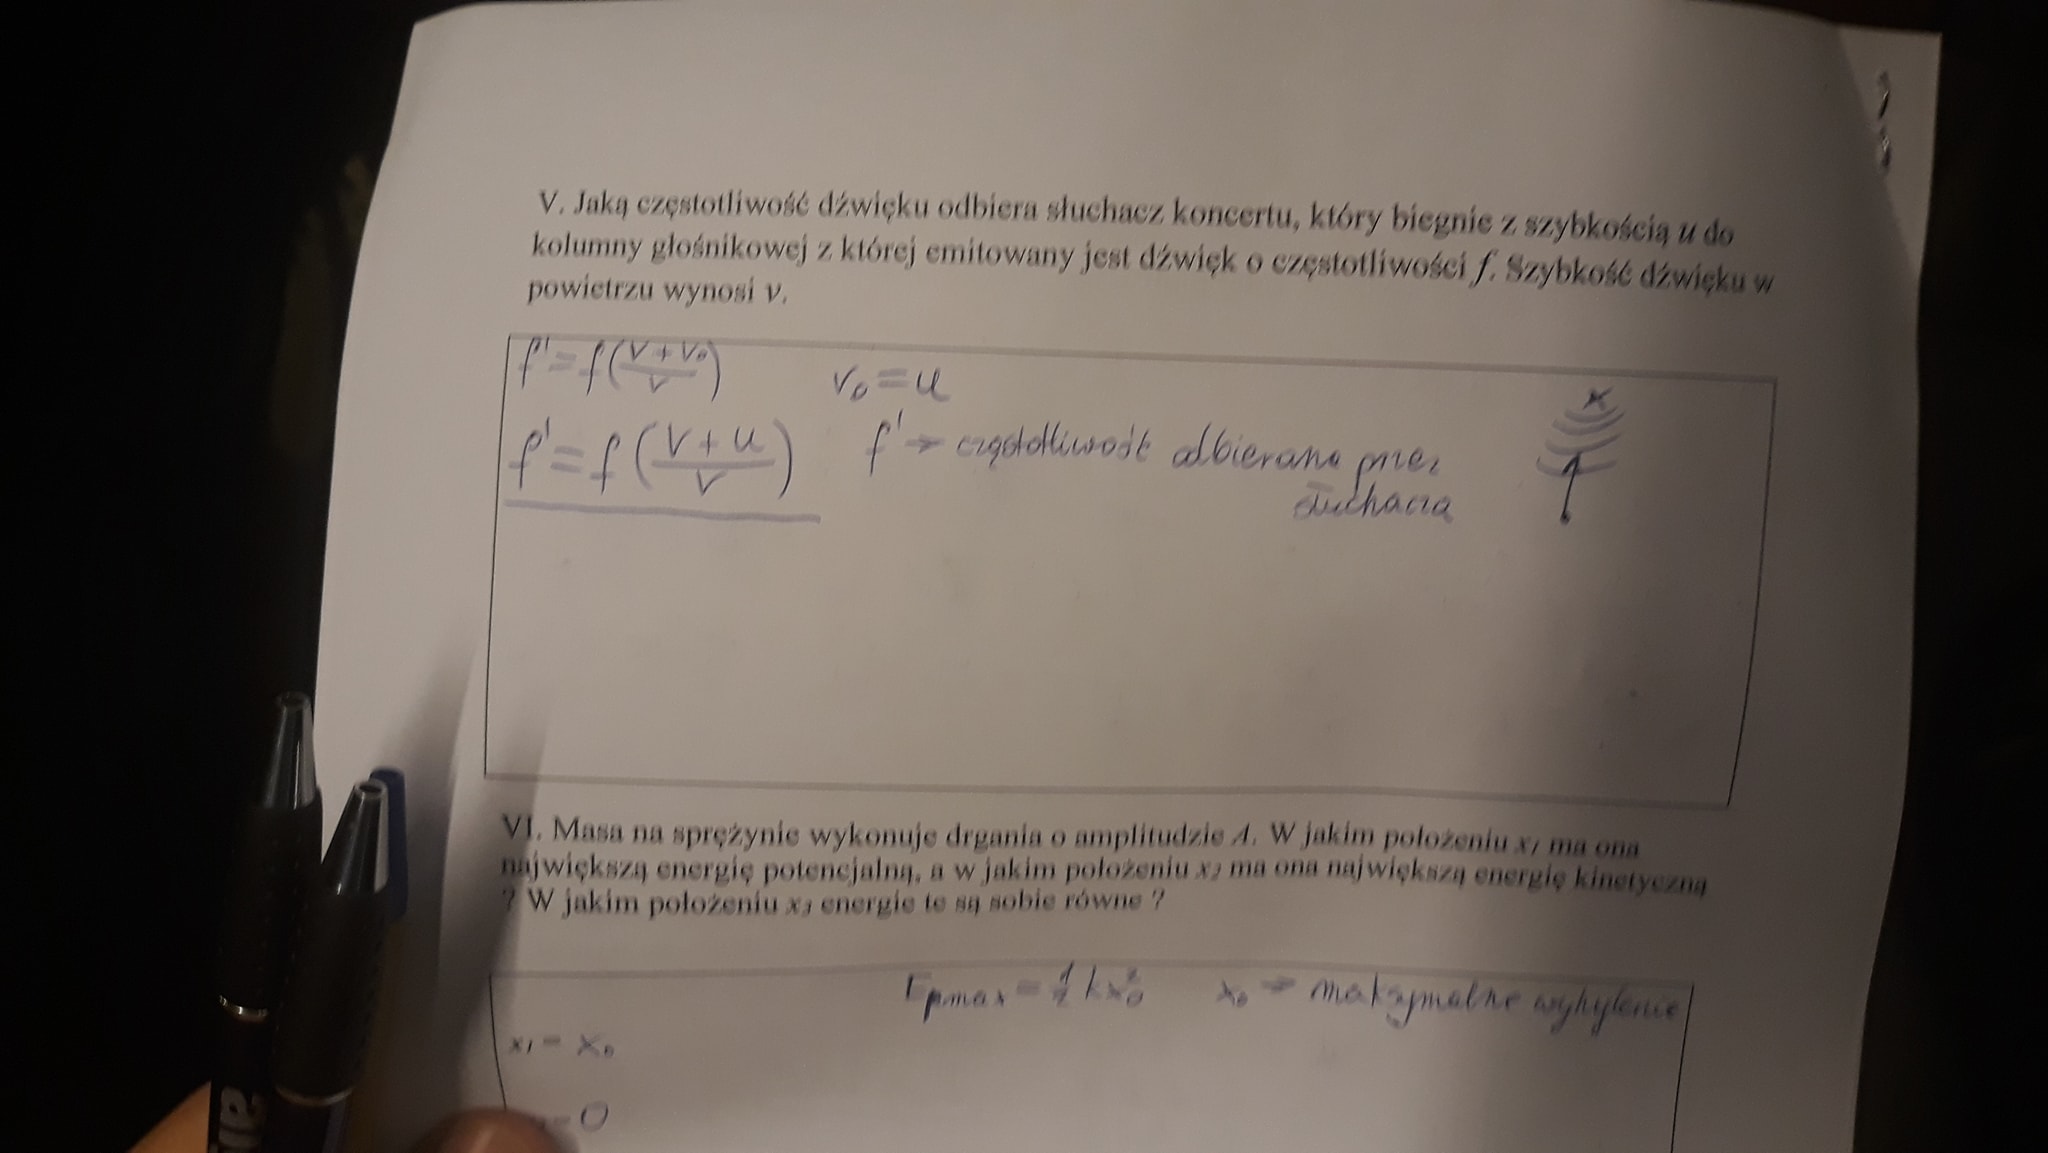 V. Jaką częstotliwość dźwięku odbiera słuchacz koncertu, który biegnie z szybkością u do
kolumny głośnikowej z której emitowany jest dźwięk o częstotliwości f. Szybkość dźwięku w
powietrzu wynosi v.
f' = f(\frac{v + v_o}{v}) v_o = u
f' = f(\frac{v + u}{v}) f' → częstotliwość odbierana przez
słuchacza
x
VI. Masa na sprężynie wykonuje drgania o amplitudzie A. W jakim położeniu x_1 ma ona
największą energię potencjalną, a w jakim położeniu x_2 ma ona największą energię kinetyczną
? W jakim położeniu x_3 energie te są sobie równe ?
E_{pmax} = \frac{1}{2} kx_0^2 x_0 → maksymalne wyhylenie
x_1 = x_0
= 0